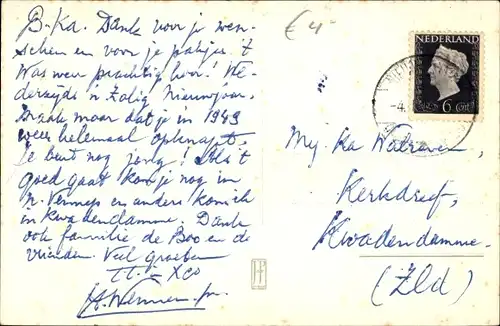 B. Ka. Dank voor je wen-
schen en voor je pakje. 't
Was weer prachtig hoor! We-
derzijds 'n Zalig Nieuwjaar.
maar dat je in 1949
weer helemaal opknapt.
Je bent nog jong! Als 't
goed gaat kom je nog in
n. Vennep en anders kom ik
in Kwadendamme. Dank
ook familie de Boo en de
vrienden. Veel groeten
tt. in XCO
€ 4-
NEDERLAND
6
Mej. Ka Walraven,
Kerkdreef,
Kwadendamme.
(Zld)